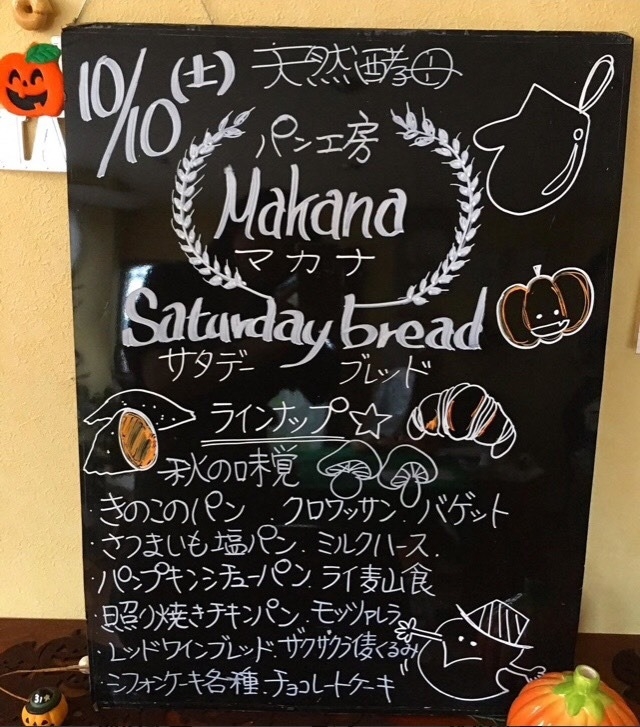 10/10(土) 天然酵母
パン工房
Makana
マカナ
Saturday bread
サタデー ブレッド
ラインナップ☆
秋の味覚
・きのこのパン . クロワッサン . バゲット
・さつまいも塩パン . ミルクハース .
・パンプキンシチューパン . ライ麦山食
・照り焼きチキンパン . モッツァレラ
・レッドワインブレッド . ザクザクライ麦くるみ
・シフォンケーキ各種 . チョコレートケーキ